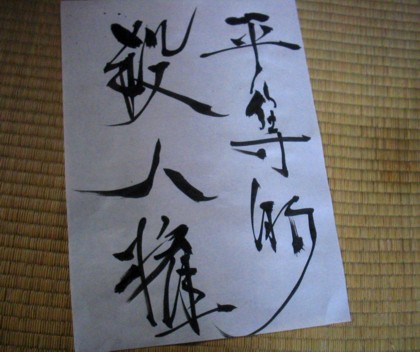 平等的
殺人權